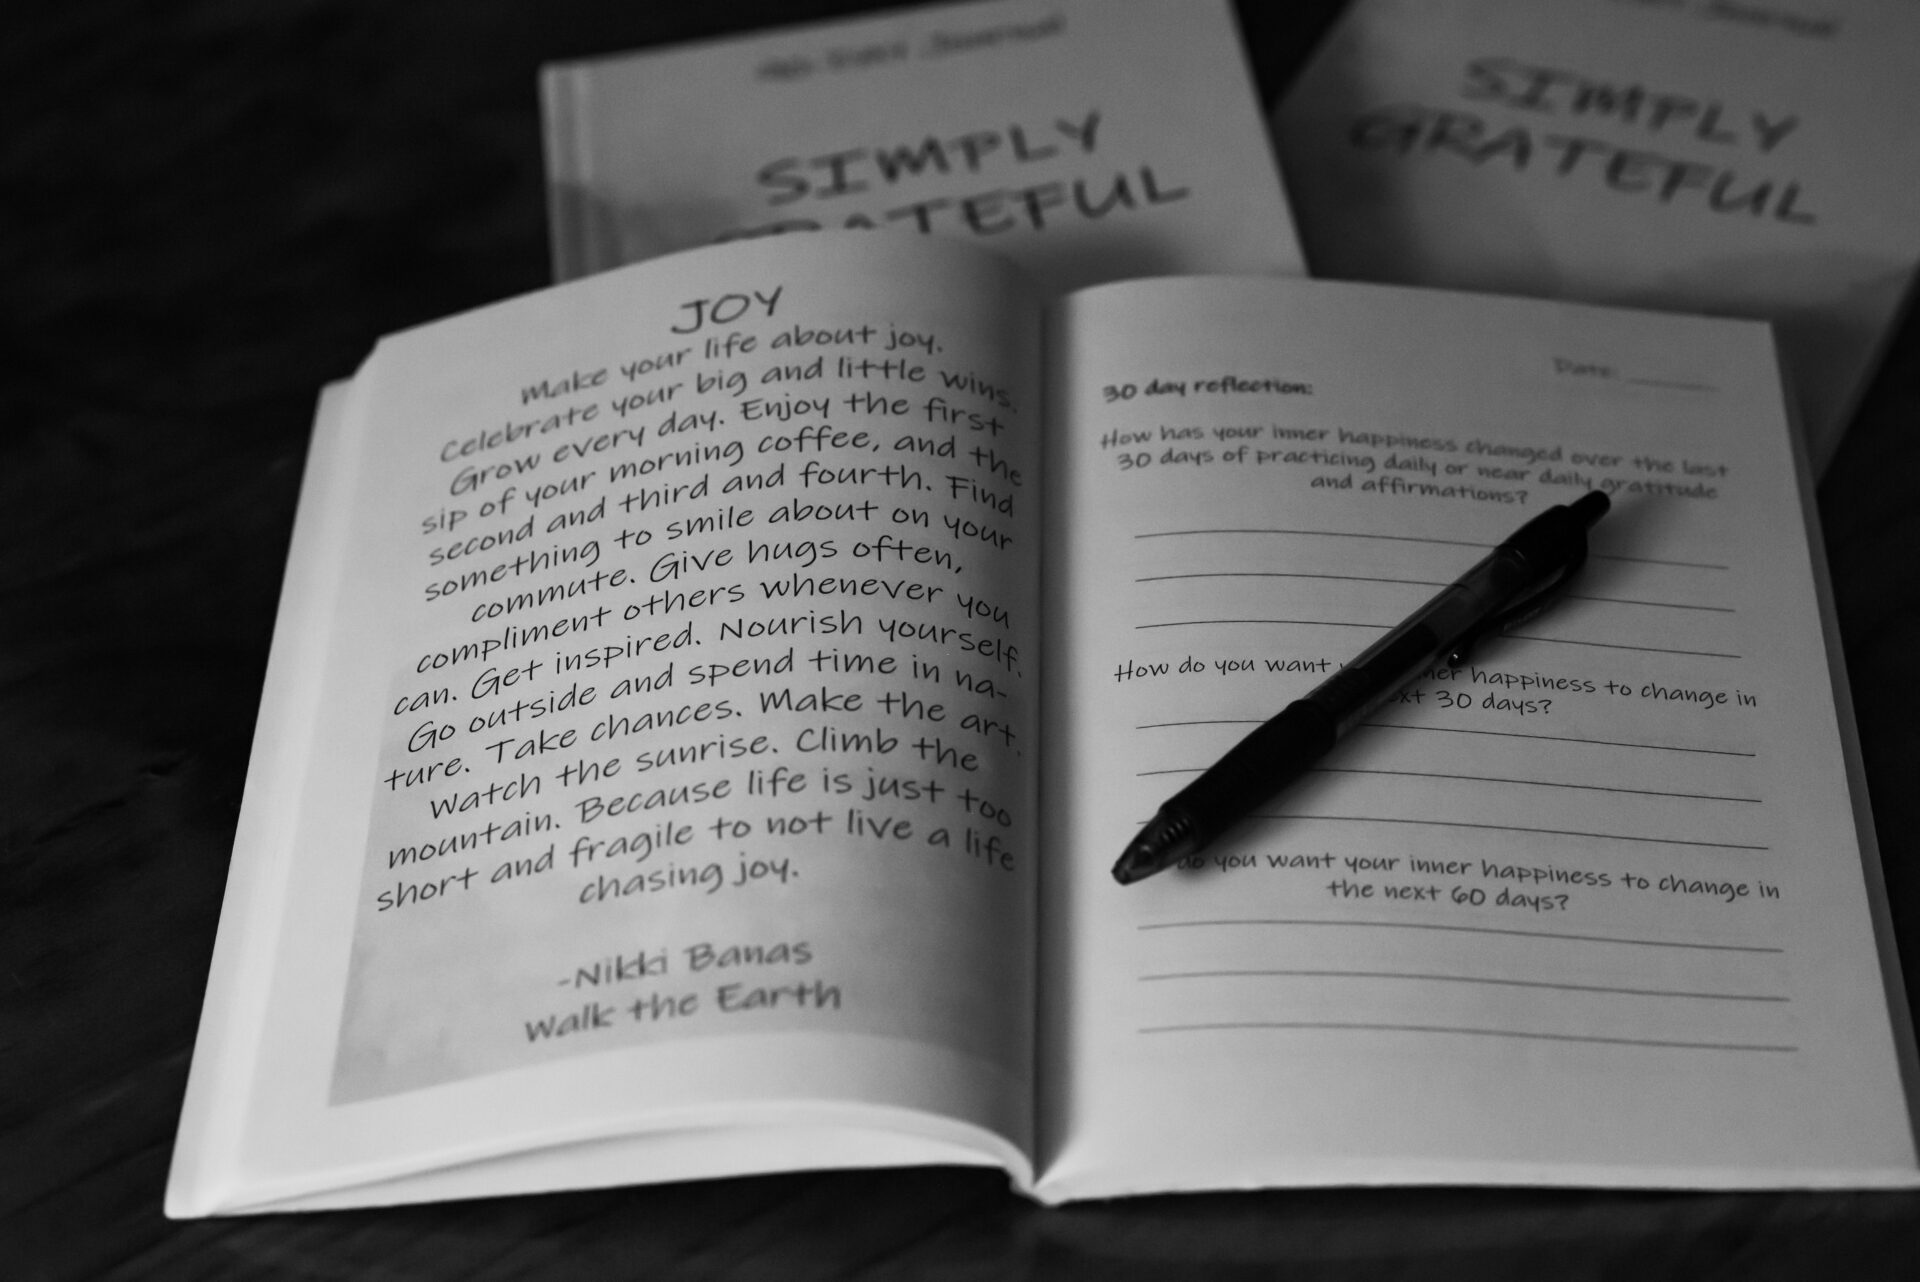 Journal
SIMPLY
GRATEFUL
Journal
SIMPLY
GRATEFUL
JOY
Make your life about joy.
Celebrate your big and little wins.
Grow every day. Enjoy the first
sip of your morning coffee, and the
second and third and fourth. Find
something to smile about on your
commute. Give hugs often,
compliment others whenever you
can. Get inspired. Nourish yourself.
Go outside and spend time in na-
ture. Take chances. Make the art.
Watch the sunrise. Climb the
mountain. Because life is just too
short and fragile to not live a life
chasing joy.
-Nikki Banas
Walk the Earth
Date:
30 day reflection:
How has your inner happiness changed over the last
30 days of practicing daily or near daily gratitude
and affirmations?
How do you want inner happiness to change in
30 days?
do you want your inner happiness to change in
the next 60 days?